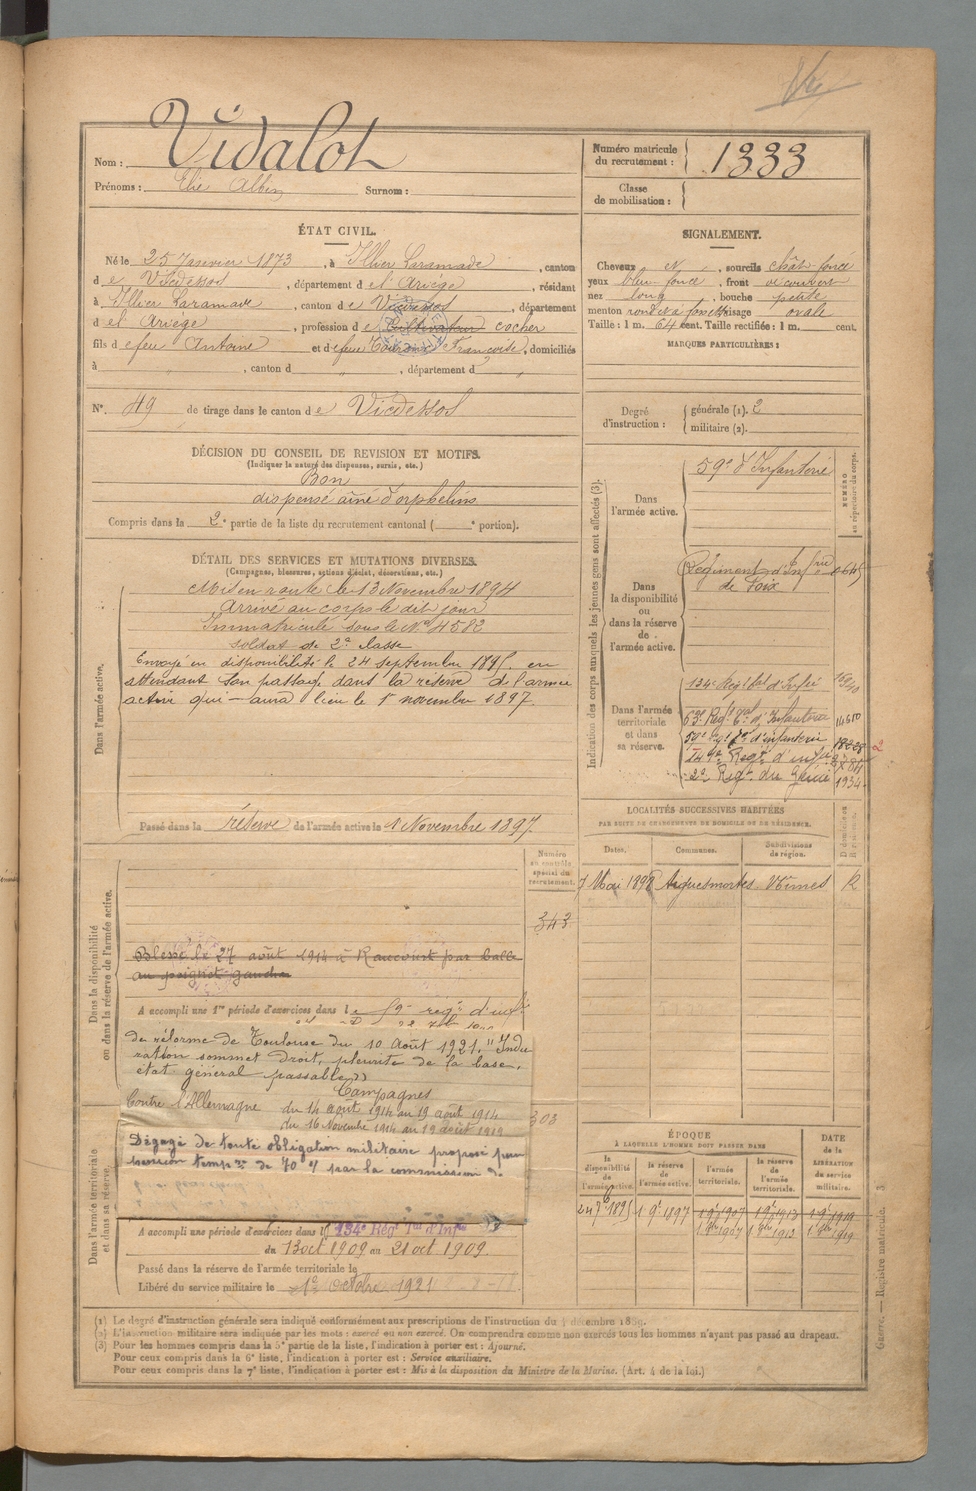 Nom : Vidalot
Prénoms : Elie Albin Surnom :
Numéro matricule du recrutement : 1333
Classe de mobilisation :
ÉTAT CIVIL.
Né le 25 Janvier 1873, à Illier Laramade, canton
de Vicdessos, département de l'Ariège, résidant
à Illier Laramade, canton de Vicdessos, département
de l'Ariège, profession de Cultivateur cocher
fils de feu Antoine et de feue Françoise, domiciliés
à , canton d " , département d "
N° 49 de tirage dans le canton de Vicdessos
SIGNALEMENT.
Cheveux et , sourcils chât. foncé
yeux bleu foncé, front découvert
nez long, bouche petite
menton rond et à fossette, visage ovale
Taille : 1 m. 64 cent. Taille rectifiée : 1 m. cent.
MARQUES PARTICULIÈRES :
Degré d'instruction : générale (1). 2
militaire (2).
DÉCISION DU CONSEIL DE REVISION ET MOTIFS.
(Indiquer la nature des dispenses, sursis, etc.)
Bon
dispensé aîné d'orphelins
Compris dans la 2e partie de la liste du recrutement cantonal ( e portion).
DÉTAIL DES SERVICES ET MUTATIONS DIVERSES.
(Campagnes, blessures, actions d'éclat, décorations, etc.)
Dans l'armée active.
Mis en route le 13 Novembre 1894
Arrivé au corps le dit jour
Immatriculé sous le N° 4582
soldat de 2e classe
Envoyé en disponibilité le 24 septembre 1895. en
attendant son passage dans la réserve de l'armée
active qui aura lieu le 1er novembre 1897
Passé dans la réserve de l'armée active le 1 Novembre 1897
Indication des corps auxquels les jeunes gens sont affectés (3).
NUMÉRO au répertoire du corps.
Dans l'armée active.
59e d'Infanterie
Dans la disponibilité ou dans la réserve de l'armée active.
Régiment d'Inf rie
de Foix
Dans l'armée territoriale et dans sa réserve.
134e Régt Tal d'Infrie
63e Régt d'Infanterie
d'infanterie
149e Régt d'infie
2e Régt du Génie 1934
LOCALITÉS SUCCESSIVES HABITÉES
PAR SUITE DE CHANGEMENTS DE DOMICILE OU DE RÉSIDENCE.
Dates. Communes. Subdivisions de région. D domicile ou R résidence.
7 Mai 1898 Aiguesmortes Nîmes R
Dans la disponibilité ou dans la réserve de l'armée active.
Numéro au contrôle spécial du recrutement.
343
Blessé le 27 août 1914 à Raucourt par balle
au poignet gauche
A accompli une 1re période d'exercices dans le 59e régt d'infie
de réforme de Toulouse du 10 Août 1921. "Indu
ration sommet droit, pleurite de la base,
état général passable"
Campagnes
Contre l'Allemagne du 14 août 1914 au 19 août 1914
du 16 Novembre 1914 au 19 août 1919
303
Dégagé de toute obligation militaire proposé pour
pension tempre de 40 % par la commission de
Dans l'armée territoriale et dans sa réserve.
A accompli une période d'exercices dans le 134e Régt Tal d'Infie
du 13 oct 1909 au 21 oct 1909
Passé dans la réserve de l'armée territoriale le
Libéré du service militaire le 1er Octobre 1921
ÉPOQUE
À LAQUELLE L'HOMME DOIT PASSER DANS
DATE de la LIBÉRATION du service militaire.
la disponibilité de l'armée active. la réserve de l'armée active. l'armée territoriale. la réserve de l'armée territoriale.
24 7bre 1895 1 9e 1897 1 9e 1907 1 9e 1913 1 9e 1919
1 8bre 1907 1 8bre 1913 1 8bre 1919
(1) Le degré d'instruction générale sera indiqué conformément aux prescriptions de l'instruction du 4 décembre 1889.
(2) L'instruction militaire sera indiquée par les mots : exercé ou non exercé. On comprendra comme non exercés tous les hommes n'ayant pas passé au drapeau.
(3) Pour les hommes compris dans la 5e partie de la liste, l'indication à porter est : Ajourné.
Pour ceux compris dans la 6e liste, l'indication à porter est : Service auxiliaire.
Pour ceux compris dans la 7e liste, l'indication à porter est : Mis à la disposition du Ministre de la Marine. (Art. 4 de la loi.)
Guerre. — Registre matricule. 3